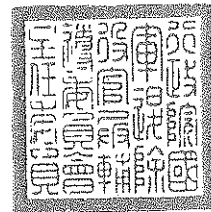 行政院國
軍退除
役官兵輔
導委員會
主任委員